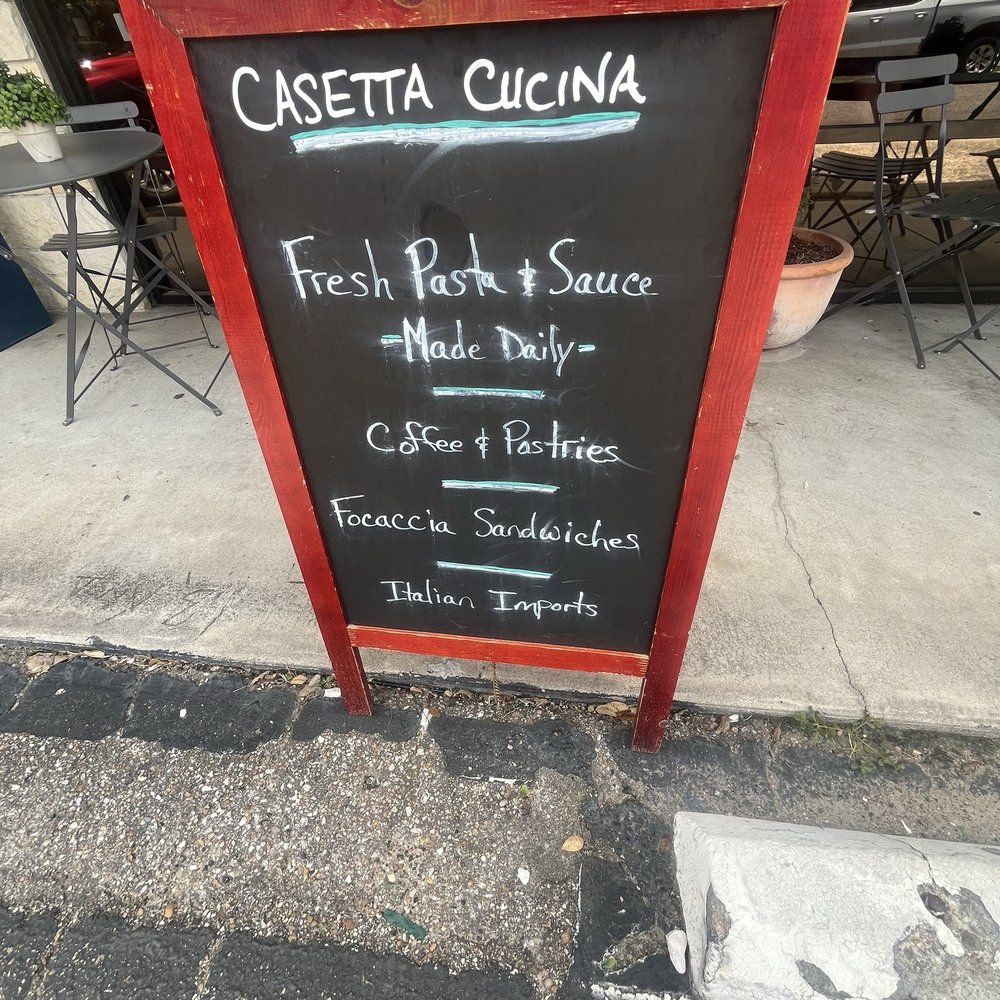 CASETTA CUCINA
Fresh Pasta & Sauce
-Made Daily-
Coffee & Pastries
Focaccia Sandwiches
Italian Imports